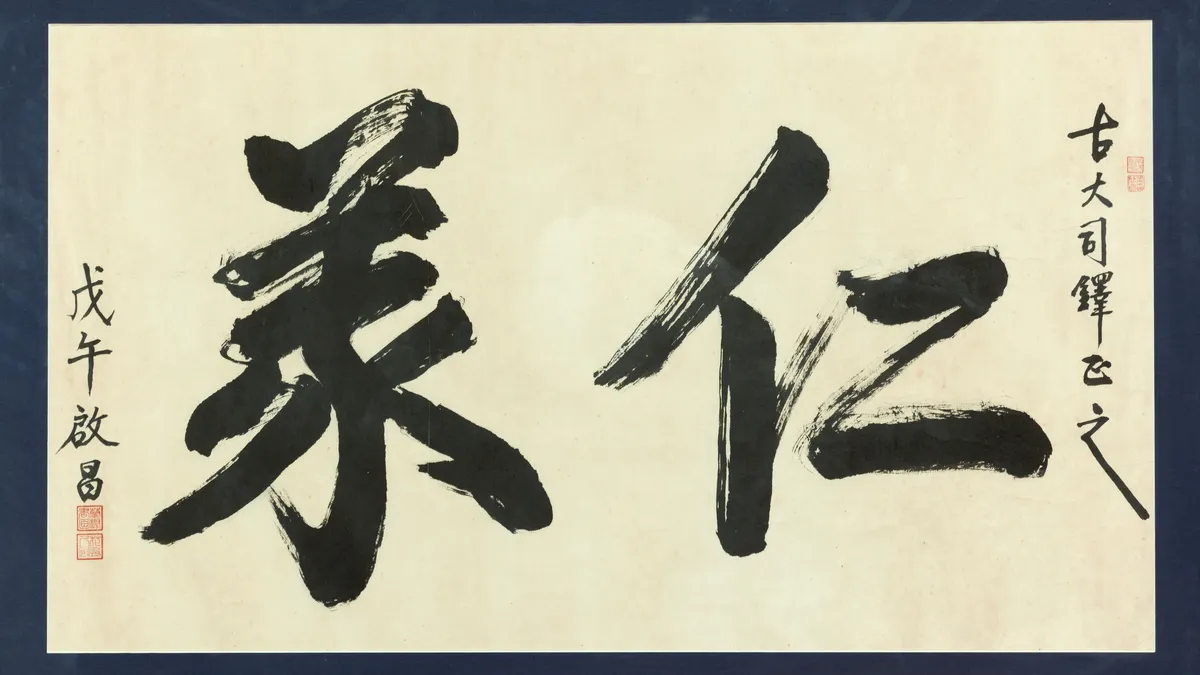 古大司鐸正之
仁
戊午啟昌